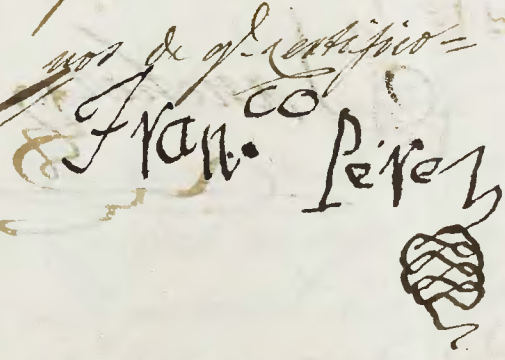 nos de q.e certifico=
Fran.co Perez